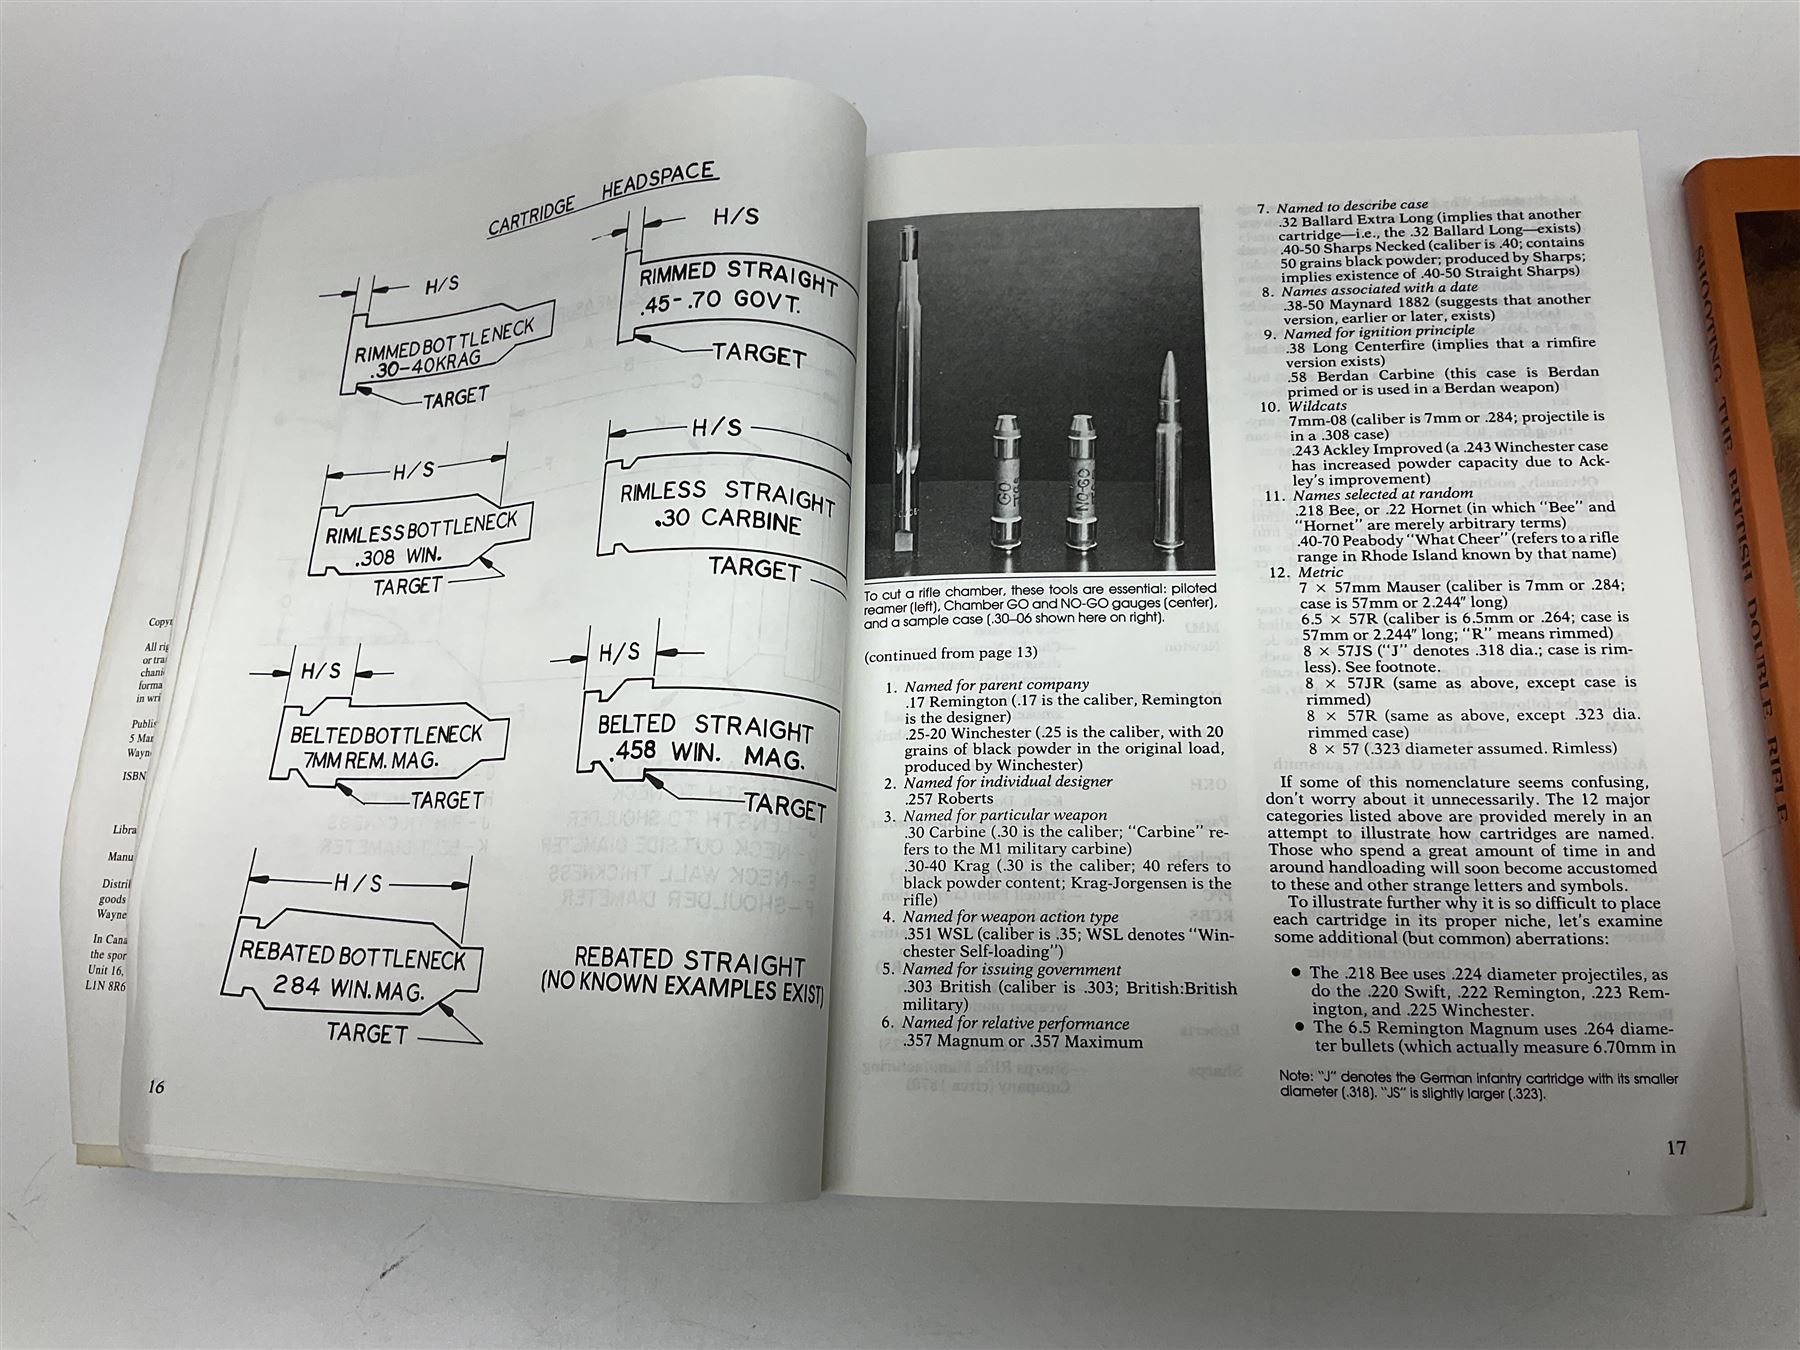 Copy
All rig
or tra
chani
forma
in wri
Publis
5 Mar
Wayn
ISBN
Libra
Manu
Distril
goods
Wayne
In Cana
the spor
Unit 16,
L1N 8R6
CARTRIDGE HEADSPACE
H/S
RIMMED BOTTLENECK
.30-40 KRAG
TARGET
H/S
RIMMED STRAIGHT
.45-.70 GOVT.
TARGET
H/S
RIMLESS BOTTLENECK
.308 WIN.
TARGET
H/S
RIMLESS STRAIGHT
.30 CARBINE
TARGET
H/S
BELTED BOTTLENECK
7MM REM. MAG.
TARGET
H/S
BELTED STRAIGHT
.458 WIN. MAG.
TARGET
H/S
REBATED BOTTLENECK
284 WIN. MAG.
TARGET
REBATED STRAIGHT
(NO KNOWN EXAMPLES EXIST)
16
GO
NO-GO
To cut a rifle chamber, these tools are essential: piloted
reamer (left), Chamber GO and NO-GO gauges (center),
and a sample case (.30-06 shown here on right).
(continued from page 13)
1. Named for parent company
.17 Remington (.17 is the caliber, Remington
is the designer)
.25-20 Winchester (.25 is the caliber, with 20
grains of black powder in the original load,
produced by Winchester)
2. Named for individual designer
.257 Roberts
3. Named for particular weapon
.30 Carbine (.30 is the caliber; "Carbine" re-
fers to the M1 military carbine)
.30-40 Krag (.30 is the caliber; 40 refers to
black powder content; Krag-Jorgensen is the
rifle)
4. Named for weapon action type
.351 WSL (caliber is .35; WSL denotes "Win-
chester Self-loading")
5. Named for issuing government
.303 British (caliber is .303; British:British
military)
6. Named for relative performance
.357 Magnum or .357 Maximum
7. Named to describe case
.32 Ballard Extra Long (implies that another
cartridge—i.e., the .32 Ballard Long—exists)
.40-50 Sharps Necked (caliber is .40; contains
50 grains black powder; produced by Sharps;
implies existence of .40-50 Straight Sharps)
8. Names associated with a date
.38-50 Maynard 1882 (suggests that another
version, earlier or later, exists)
9. Named for ignition principle
.38 Long Centerfire (implies that a rimfire
version exists)
.58 Berdan Carbine (this case is Berdan
primed or is used in a Berdan weapon)
10. Wildcats
7mm-08 (caliber is 7mm or .284; projectile is
in a .308 case)
.243 Ackley Improved (a .243 Winchester case
has increased powder capacity due to Ack-
ley's improvement)
11. Names selected at random
.218 Bee, or .22 Hornet (in which "Bee" and
"Hornet" are merely arbitrary terms)
.40-70 Peabody "What Cheer" (refers to a rifle
range in Rhode Island known by that name)
12. Metric
7 × 57mm Mauser (caliber is 7mm or .284;
case is 57mm or 2.244" long)
6.5 × 57R (caliber is 6.5mm or .264; case is
57mm or 2.244" long; "R" means rimmed)
8 × 57JS ("J" denotes .318 dia.; case is rim-
less). See footnote.
8 × 57JR (same as above, except case is
rimmed)
8 × 57R (same as above, except .323 dia.
rimmed case)
8 × 57 (.323 diameter assumed. Rimless)
If some of this nomenclature seems confusing,
don't worry about it unnecessarily. The 12 major
categories listed above are provided merely in an
attempt to illustrate how cartridges are named.
Those who spend a great amount of time in and
around handloading will soon become accustomed
to these and other strange letters and symbols.
To illustrate further why it is so difficult to place
each cartridge in its proper niche, let's examine
some additional (but common) aberrations:
• The .218 Bee uses .224 diameter projectiles, as
do the .220 Swift, .222 Remington, .223 Rem-
ington, and .225 Winchester.
• The 6.5 Remington Magnum uses .264 diame-
ter bullets (which actually measure 6.70mm in
Note: "J" denotes the German infantry cartridge with its smaller
diameter (.318). "JS" is slightly larger (.323).
17
SHOOTING THE BRITISH DOUBLE RIFLE